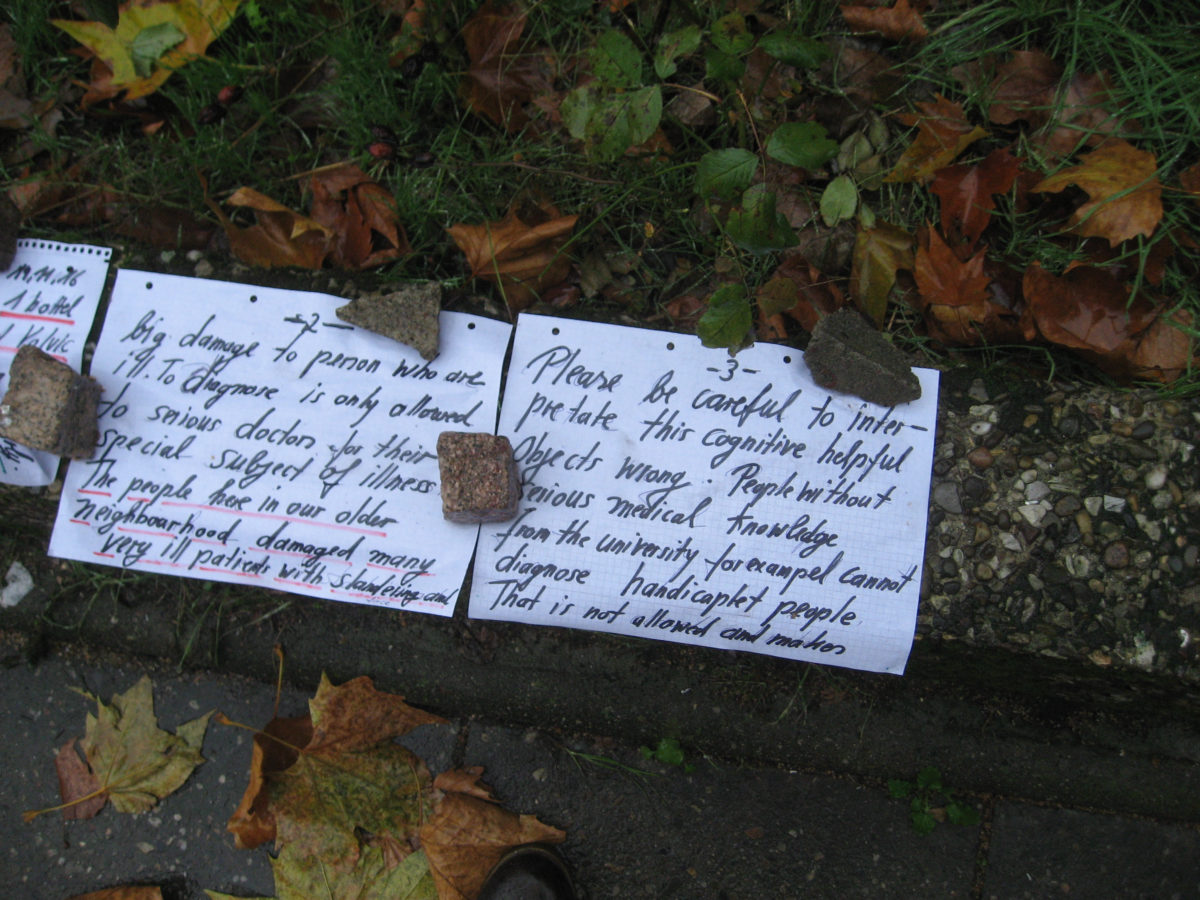 19.11.16
1 bottel
Volvic
-2-
big damage to person who are
ill. To diagnose is only allowed
to serious doctors for their
special subject of illness
The people here in our older
neighbourhood damaged many
very ill patients with slandeling and
-3-
Please be careful to inter-
pretate this cognitive helpful
Objects wrong. People without
serious medical knowledge
from the university forexampel cannot
diagnose handicaptet people
That is not allowed and makes